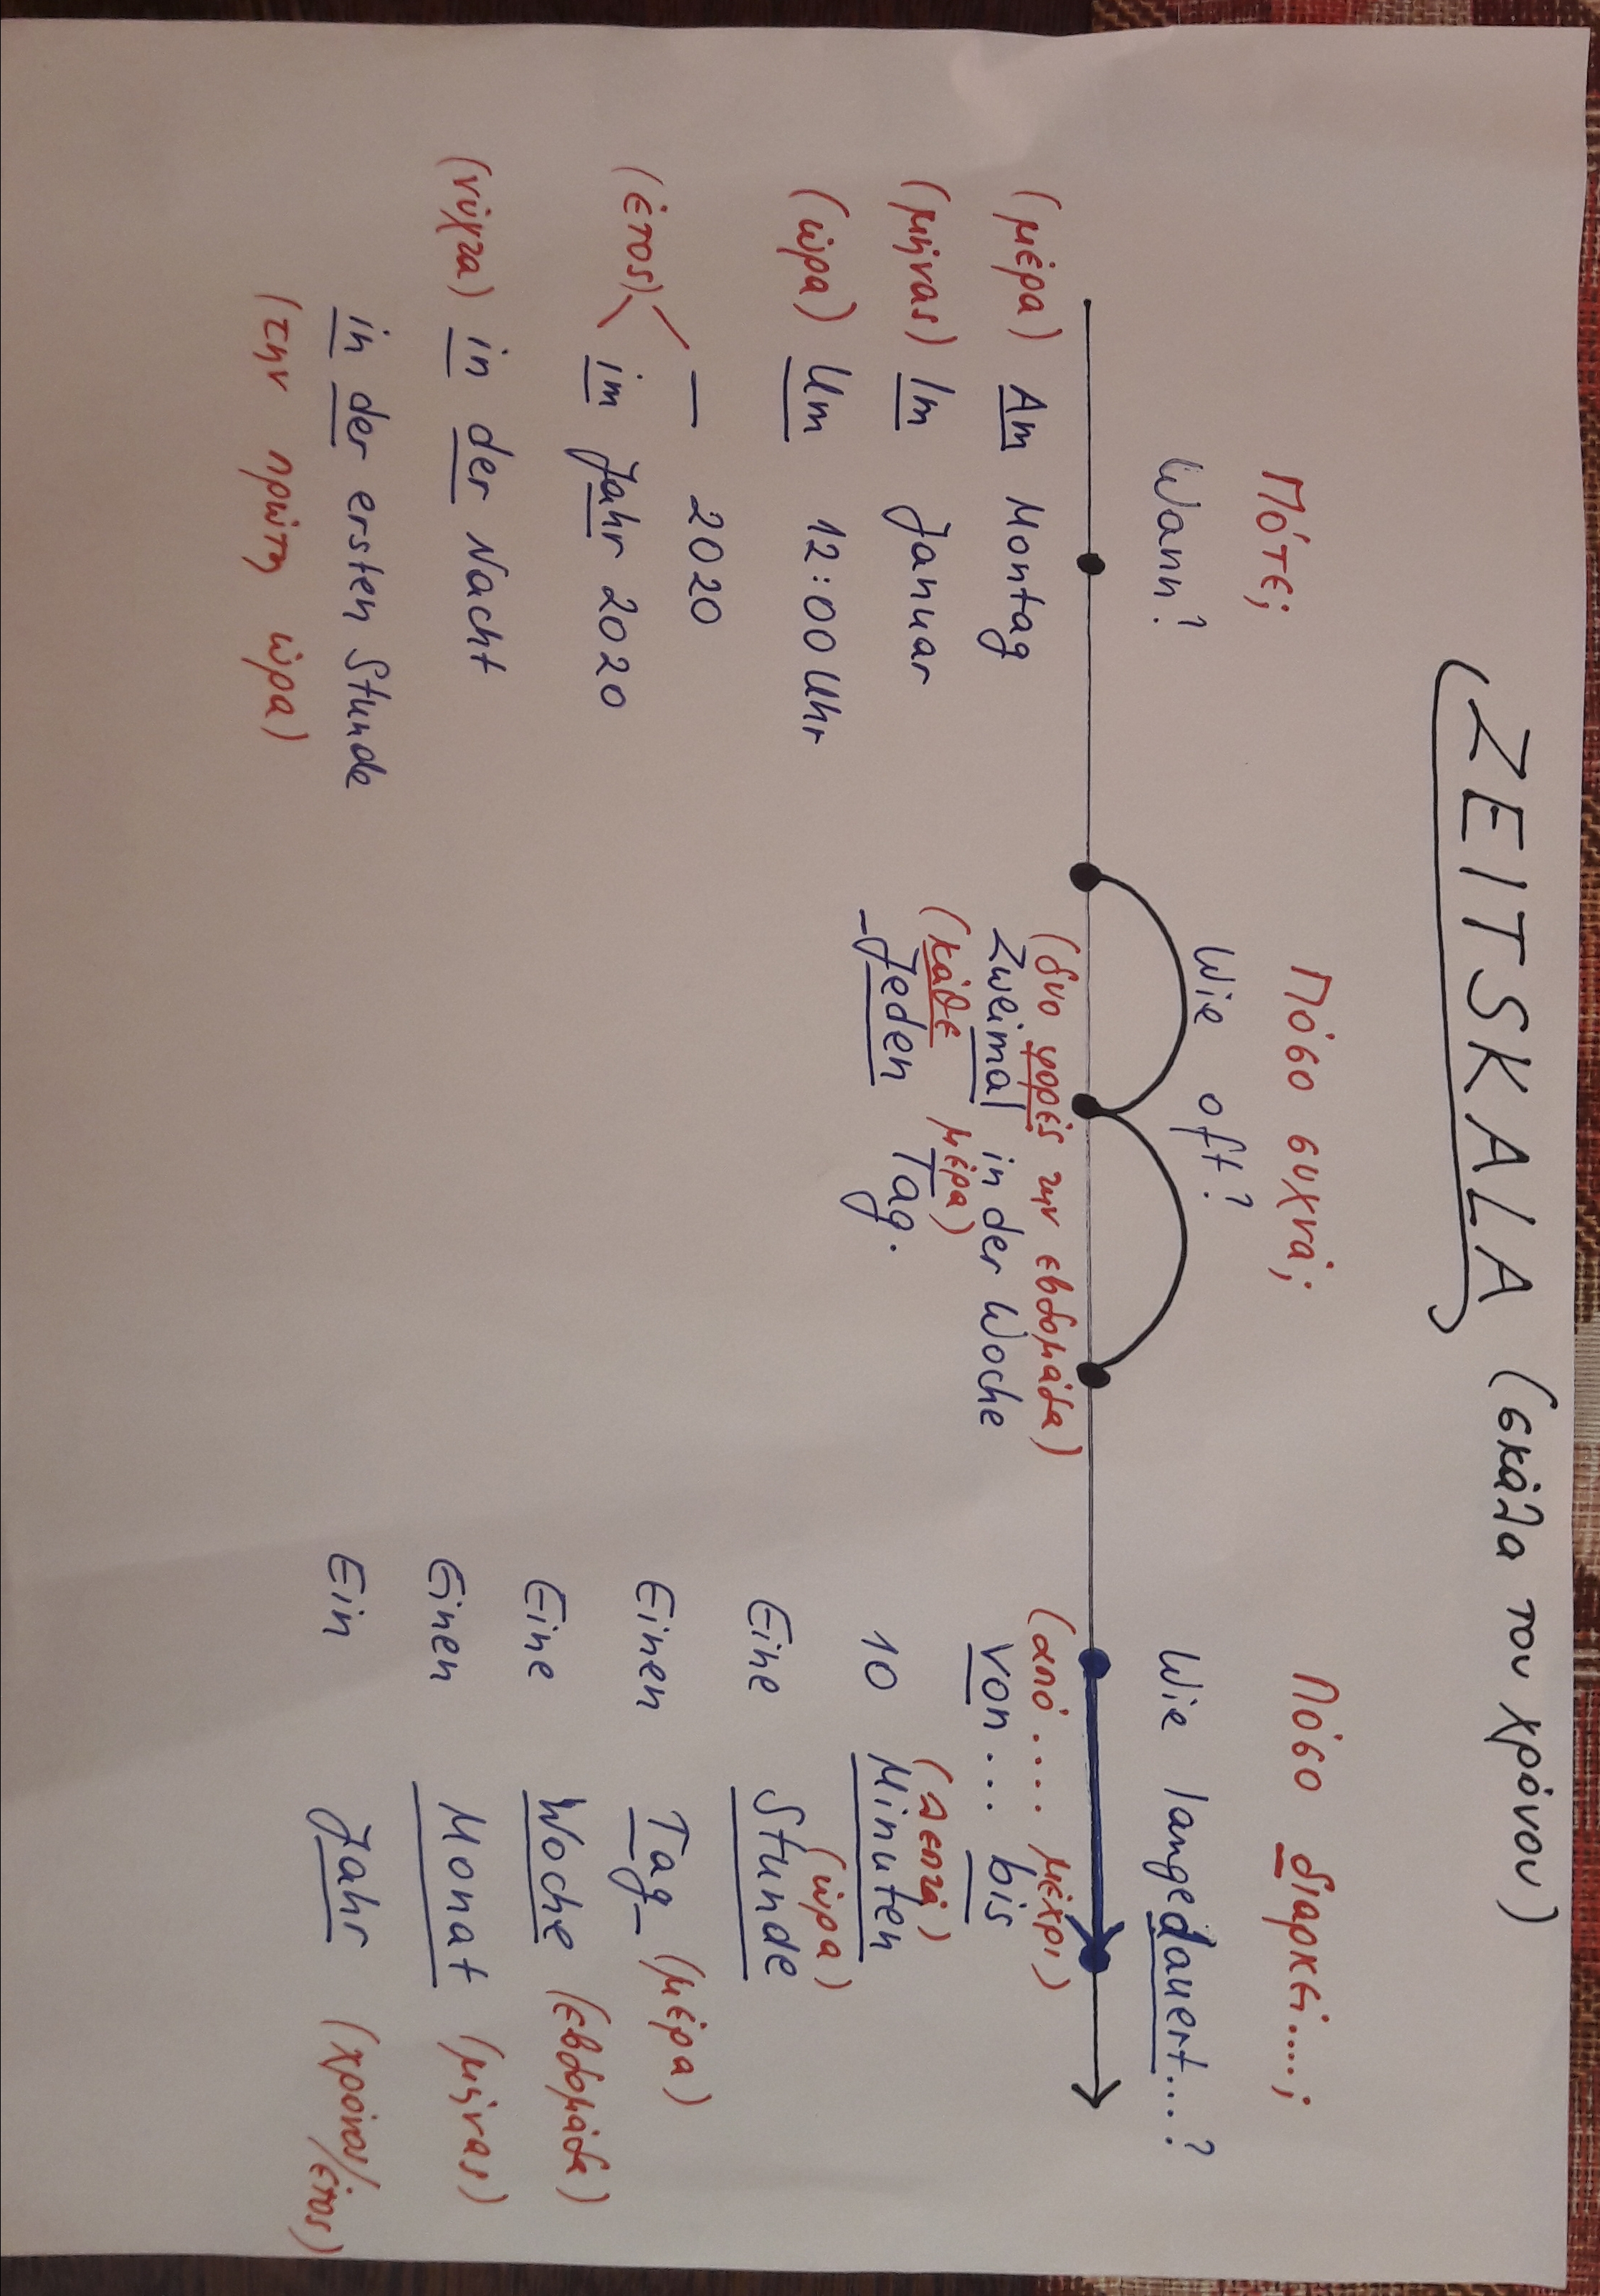 ZEITSKALA (σκάλα του χρόνου)
Πότε;
Wann?
(μέρα) Am Montag
(μήνας) Im Januar
(ώρα) Um 12:00 Uhr
(έτος) — 2020
im Jahr 2020
(νύχτα) in der Nacht
in der ersten Stunde
(την πρώτη ώρα)
Πόσο συχνά;
Wie oft?
(δυο φορές την εβδομάδα)
Zweimal in der Woche
(κάθε μέρα)
-Jeden Tag.
Πόσο διαρκεί....;
Wie lange dauert...?
(από.... μέχρι)
Von... bis
(λεπτά)
10 Minuten
(ώρα)
Eine Stunde
Einen Tag (μέρα)
Eine Woche (εβδομάδα)
Einen Monat (μήνας)
Ein Jahr (χρόνος/έτος)